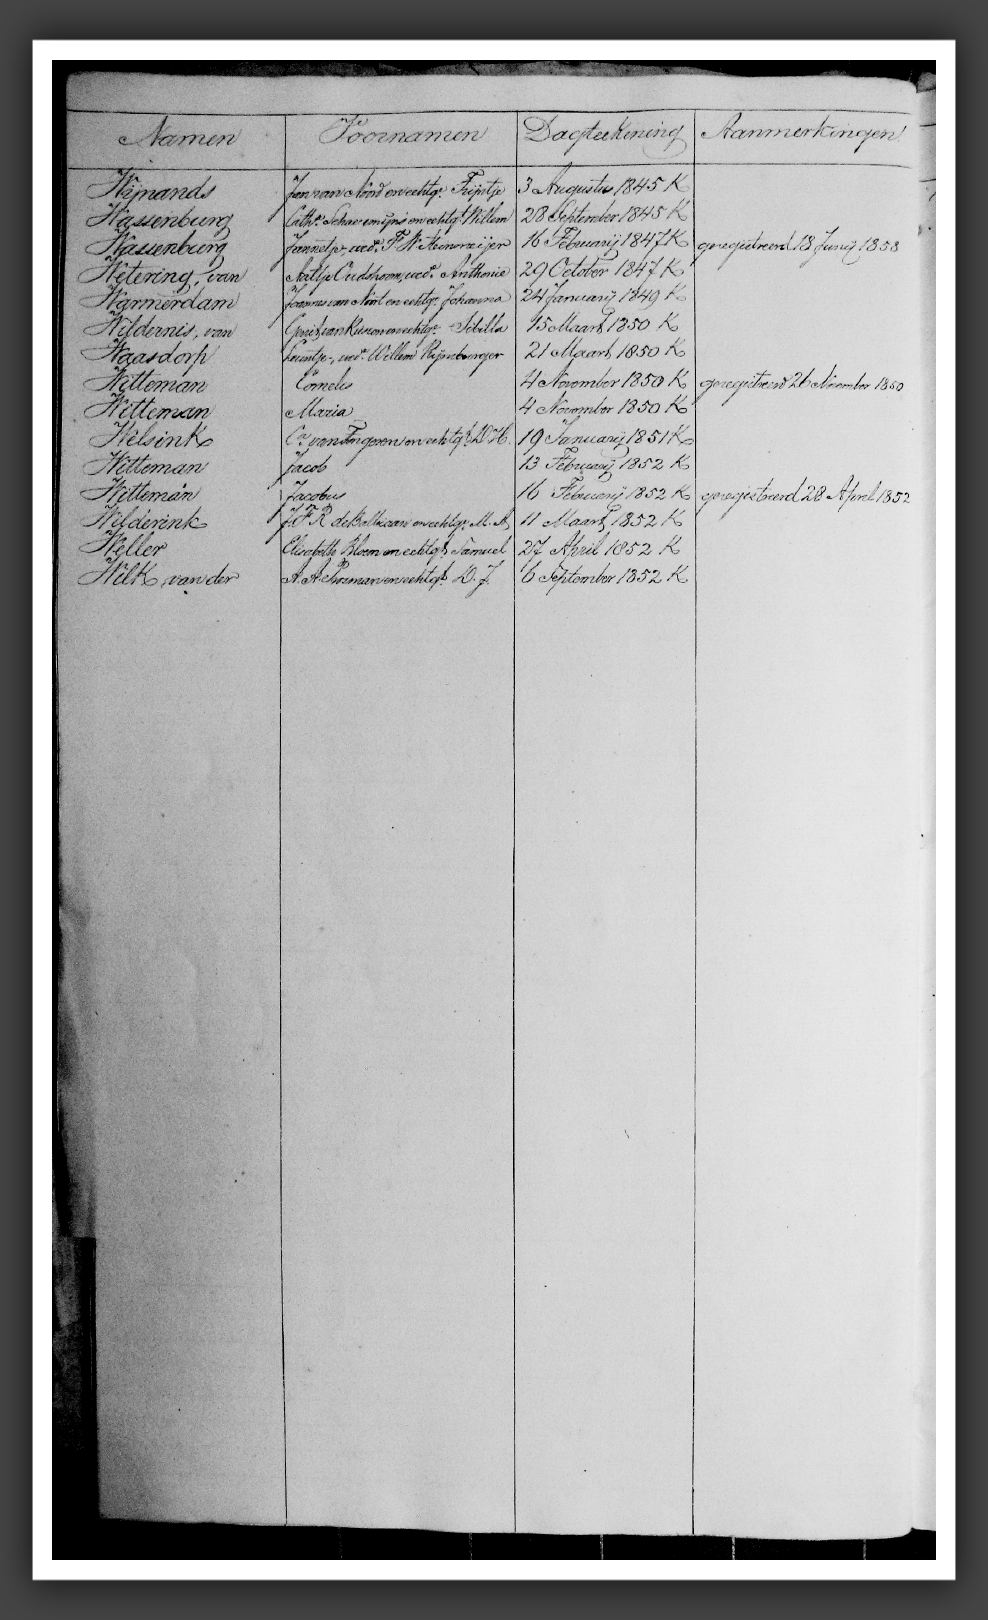 Namen Voornamen Dagteekening Aanmerkingen
Wijnands Jan van Nood en echtge. Trijntje 3 Augustus 1845 K
Wassenburg Cathe. en echtgt. Willem 28 September 1845 K
Wassenburg Jannetje, wede. F. W. 16 Februarij 1847 K geregistreerd 18 Junij 1858
Wetering, van Aaltje Oudshoorn, wede. Anthonie 29 October 1847 K
Warmerdam Joannes van Nood en echtge. Johanna 24 Januarij 1849 K
Wildernis, van Gerrit van en echtge. Sibilla 15 Maart 1850 K
Waasdorp Leuntje, wede. Willem Rijnsburger 21 Maart 1850 K
Witteman Cornelis 4 November 1850 K geregistreerd 26 November 1850
Witteman Maria 4 November 1850 K
Welsink Cs. van Tongeren en echtgt. D. H. 19 Januarij 1851 K
Witteman Jacob 13 Februarij 1852 K
Witteman Jacobus 16 Februarij 1852 K geregistreerd 28 April 1852
Wilderink J. F. R. de en echtge. M. A. 11 Maart 1852 K
Weller Elisabeth Bloem en echtgt. Samuel 27 April 1852 K
Wilk, van der A. A. en echtgt. D. J. 6 September 1852 K